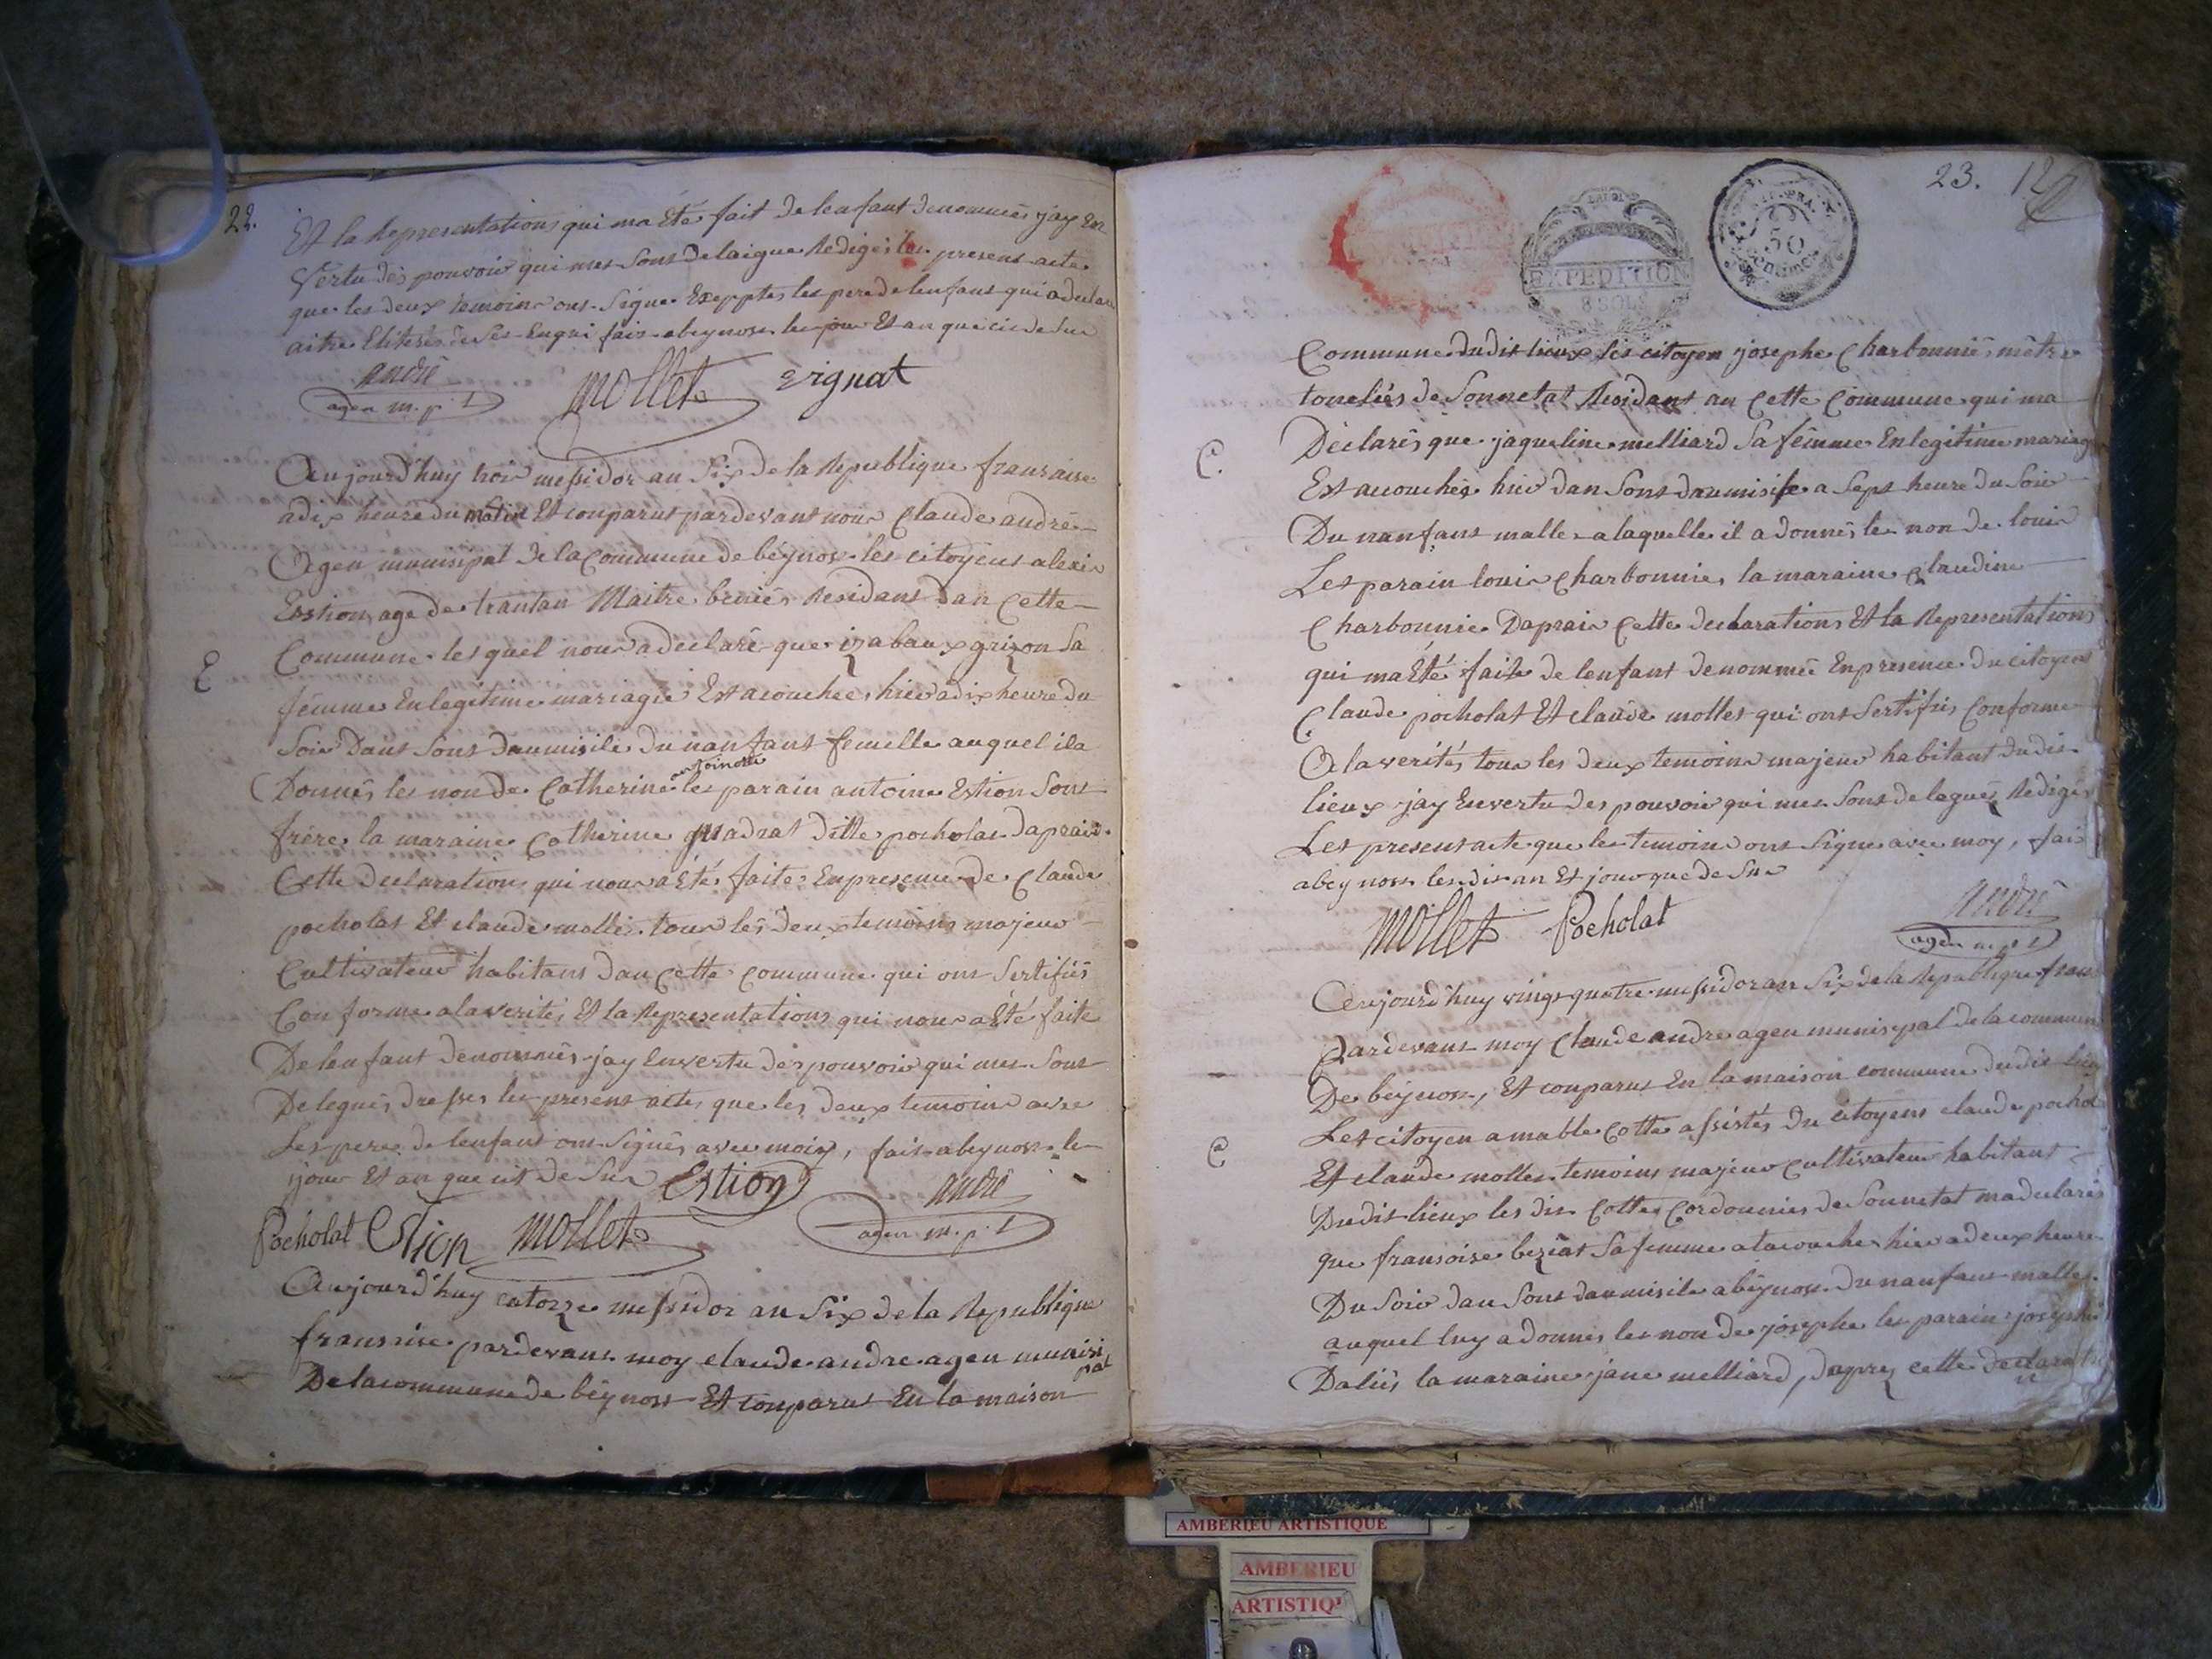 22.
Et la Representations qui ma Eté fait de lenfant denommés jay En
Vertu des pouvoir qui mes sont delaigue Redigés les present acte
que les deux temoins ons signe Exepptes les pere de lenfant qui a declare
aitre Eliteré de ses Enqui fais a beynost le jour Et an que ci de sur
andré
agen m. p. l
mollet
Erignat
Aujourd'huy trois messidor an Six de la Republique fransaise
a dix heure du matin Et conparut pardevant nous Claude andré
Agen munisipal de la Commune de béynost les citoyens alexis
Estion age de trantan Maitre Residant dan Cette
Commune les quel nous a declaré que izabaux grizon Sa
E
fémme En legitime mariage Est acouchee hier a dix heure du
Soir Dans Sons daumisile Du nanfant femelle auquel il a
Donnés les non de Catherine antoinette les parain antoine Estion Sont
frére la maraine Catherine guadrat ditte pocholat daprais
Cette declaration qui nous a Eté faite En presence de Claude
pocholat Et claude mollet tous lés deux temoins majeur
Cultivateur habitans dan Cette commune qui ons Sertifiés
Conforme a la verité Et la Representations qui nous a Eté faite
De lenfant denommés jay En vertu des pouvoir qui mes Sont
Delegués dresses les present acte que les deux temoins avec
Les pere de lenfant ons Signés avec mois, fait a beynost le
jour Et an que cit de Sur
Estion
andré
agen m. p. l
Pocholat Estion mollet
Aujourd'huy catorze messidor an Six de la Republique
fransaise pardevant moy claude andre agen munisipal
De la commune de béynost Et conparut En la maison
23. 12
EXPEDITION
8 SOLS
50
Centimes
Commune dudit lieux les citoyen josephe Charbonniés mêtre
toneliés de Son netat Residant an Cette Commune qui ma
C.
Déclarés que jaqueline melliard Sa fémme En legitime mariage
Est acouchée hier dan Sons daumisile a Sept heure du Soir
Du nanfant malle a laquelle il a donnés le non de louis
Les parain louis Charbonnie la maraine Claudine
Charbonnie Daprais Cette declarations Et la Representations
qui ma Eté faite de lenfant denommée En presence du citoyens
Claude pocholat Et claude mollet qui ont Sertifiés Conforme
A la verités tous les deux temoins majeur habitant dudit
lieux jay En vertu des pouvoir qui mes Sont delegués Redigés
Les present acte que les temoins ons Signe avec moy, fais
a beynost les dit an Et jour que de Sur
mollet
Pocholat
André
agen m. p. l
Aujourd'huy vingt quatre messidor an Six de la Republique frans
Pardevant moy Claude andre agen munisipal de la commune
De béynost, Et conparut En la maison commune dudit lieu
Les citoyen amable Cotte assistés du citoyens claude pochol
C
Et claude mollet temoins majeur Cultivateur habitant
Dudit lieux les dit Cotte Cordonnier de Sonnetat ma declarés
que fransoise beziat Sa femme at acouche hier a deux heure
Du Soir dan Sons daumisile a béynost Du nanfant malle
auquel luy a donnés les non de josephe les parain josephe
Daliés la maraine jane melliard, daprez cette declarati
AMBERIEU ARTISTIQUE
AMBERIEU
ARTISTIQ'